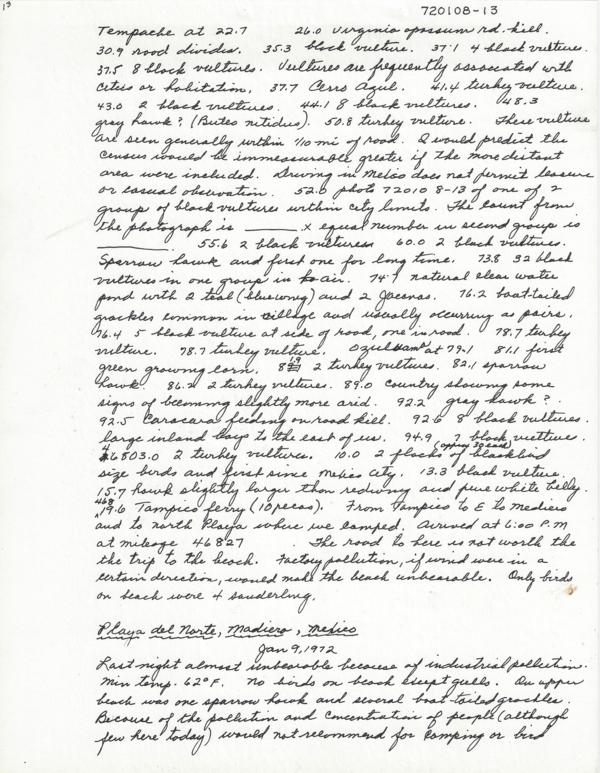 13
720108-13
Tempache at 22.7 26.0 Virginia opossum rd. kill.
30.9 road divides. 35.3 black vulture. 37.1 4 black vultures.
37.5 8 black vultures. Vultures are frequently associated with
cities or habitation. 37.7 Cerro Azul. 41.4 turkey vulture.
43.0 2 black vultures. 44.1 8 black vultures. 48.3
gray hawk? (Buteo nitidus). 50.8 turkey vulture. These vulture
are seen generally within 1/10 mi of road. I would predict the
census would be immeasurable greater if the more distant
area were included. Driving in Mexico does not permit leasure
or casual observation. 52.0 photo 72010 8-13 of one of 2
group of black vultures within city limits. The count from
the photograph is ______ x equal number in second group is
______ 55.6 2 black vultures 60.0 2 black vultures.
Sparrow hawk and first one for long time. 73.8 32 black
vultures in one group in air. 74.1 natural clear water
pond with 2 teal (bluewing) and 2 Jacanas. 76.2 boat-tailed
grackles common in village and usually occurring as pairs.
76.4 5 black vulture at side of road, one in road. 78.7 turkey
vulture. 78.7 turkey vulture. at 79.1 81.1 first
green growing corn. 81.9 2 turkey vultures. 82.1 sparrow
hawk. 86.2 2 turkey vultures. 89.0 country showing some
signs of becoming slightly more arid. 92.2 gray hawk?
92.5 Caracara feeding on road kill. 92.6 8 black vultures.
large inland bay to the east of us. 94.9 7 black vulture.
46803.0 2 turkey vultures. 10.0 2 flocks of (approx 30 each) blackbird
size birds and first since Mexico City. 13.3 black vulture.
15.7 hawk slightly larger than redwing and pure white belly.
468 19.6 Tampico ferry (10 pesos). From Tampico to E to Madiero
and to north Playa where we camped. Arrived at 6:00 P.M
at mileage 46827 The road to here is not worth the
the trip to the beach. Factory pollution, if wind were in a
certain direction, would make the beach unbearable. Only birds
on beach were 4 sanderling.
Playa del Norte, Madiero, Mexico
Jan 9, 1972
Last night almost unbearable because of industrial pollution.
Min temp. 62°F. No birds on beach except gulls. On upper
beach was one sparrow hawk and several boat-tailed grackles.
Because of the pollution and concentration of people (although
few here today) would not recommend for camping or bird